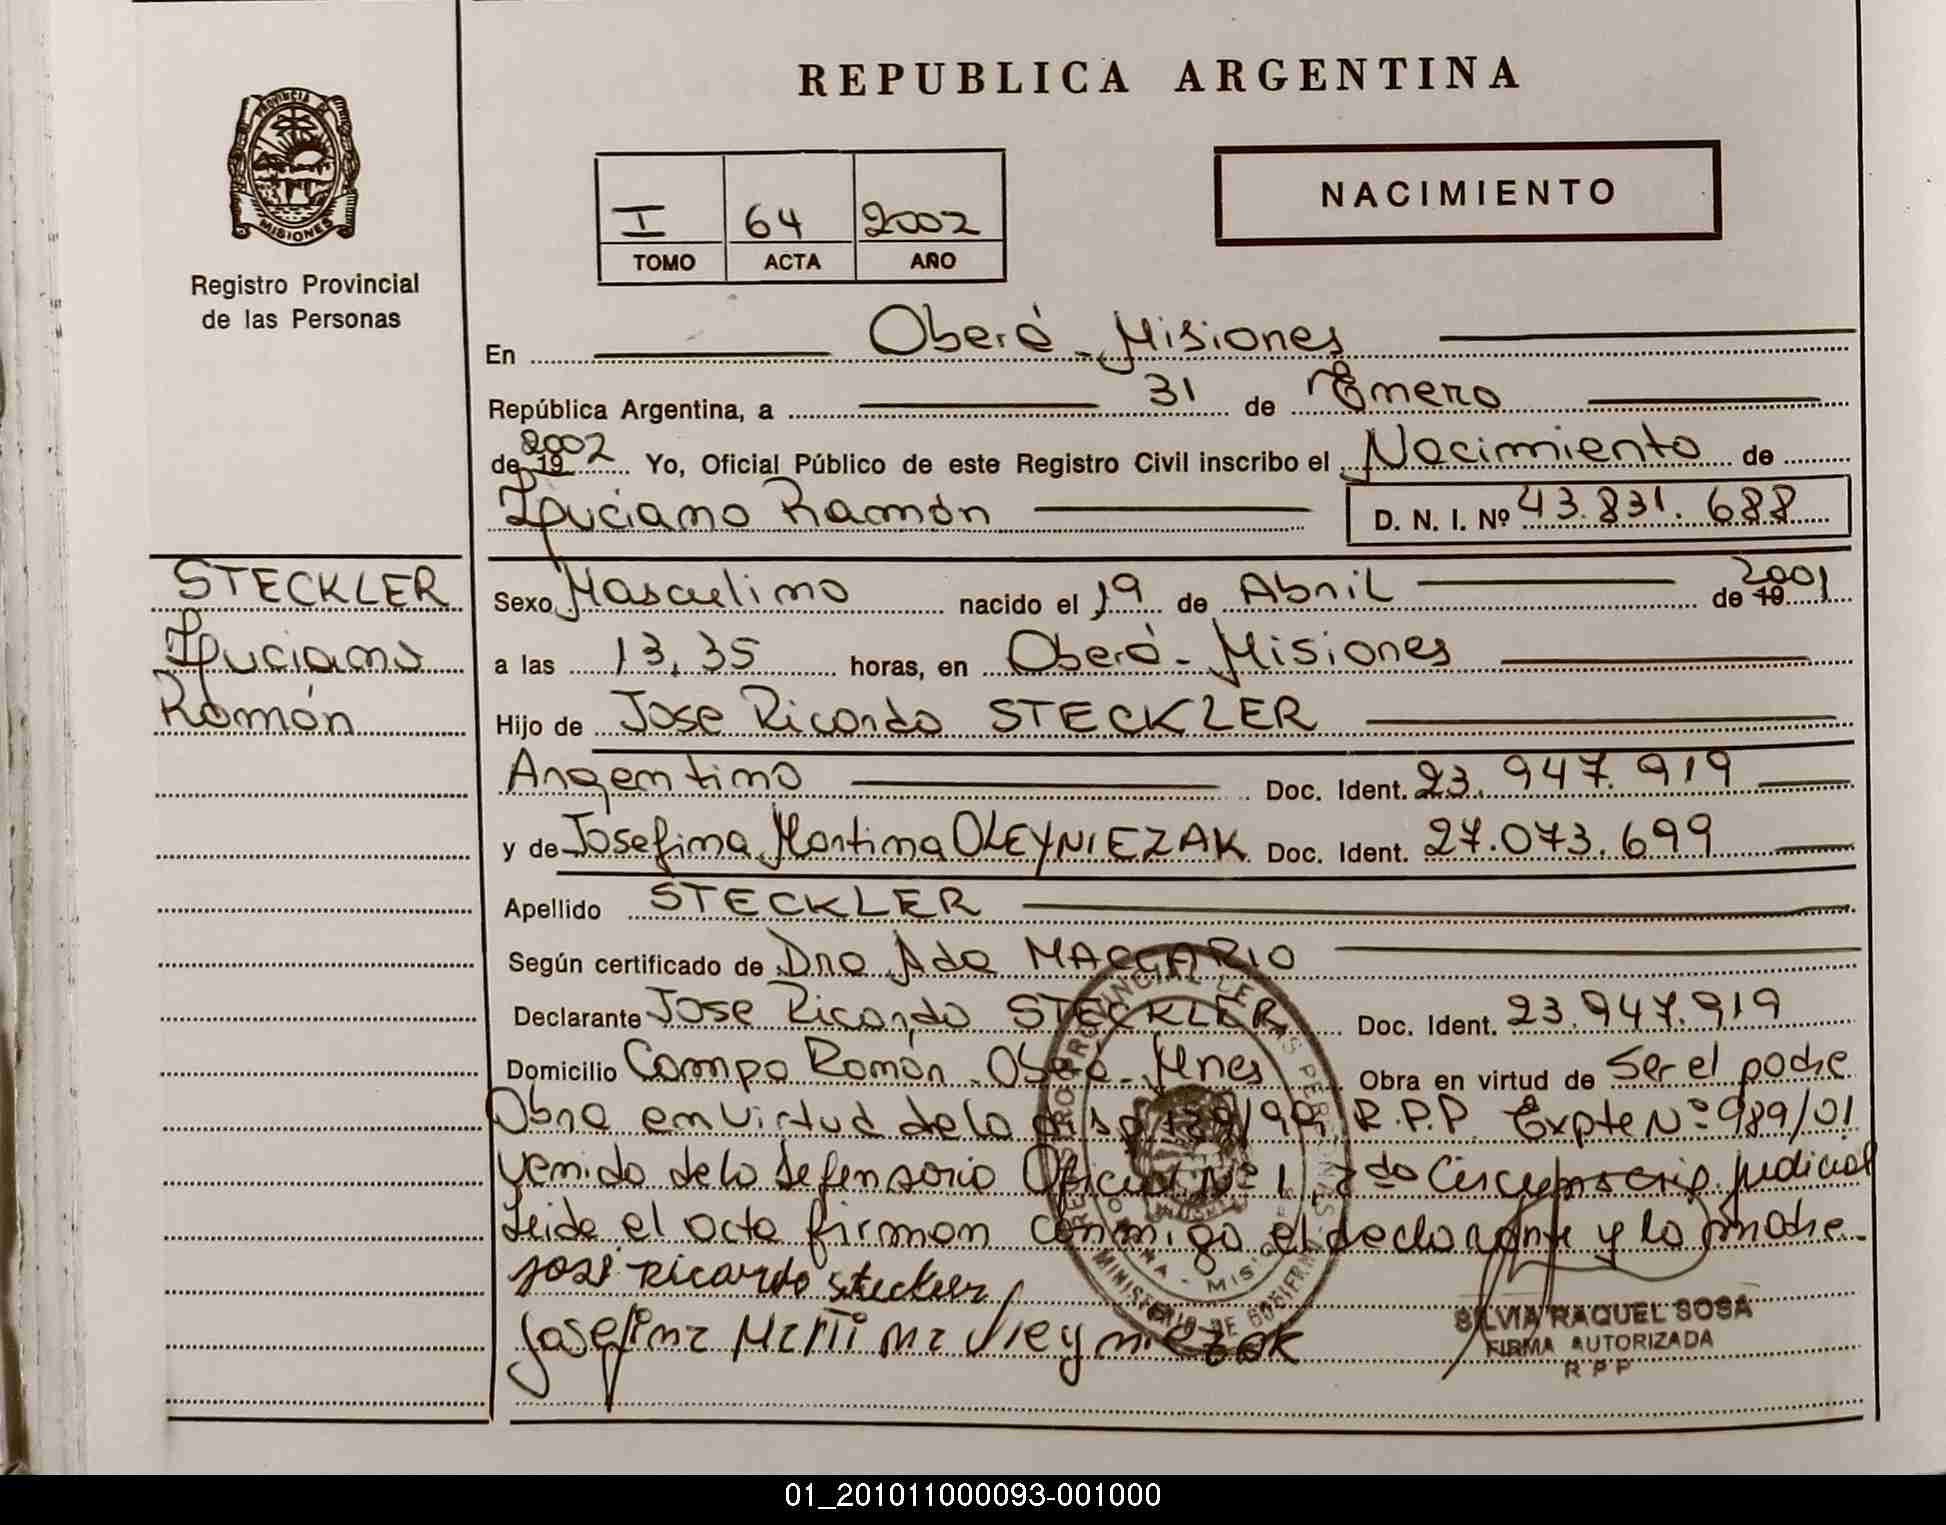 REPUBLICA ARGENTINA
PROVINCIA DE
MISIONES
Registro Provincial
de las Personas
I 64 2002
TOMO ACTA AÑO
NACIMIENTO
En Oberá - Misiones
República Argentina, a 31 de Enero
de 19 2002 Yo, Oficial Público de este Registro Civil inscribo el Nacimiento de
Luciano Ramón D. N. I. Nº 43.831.688
STECKLER
Luciano
Ramón
Sexo Masculino nacido el 19 de Abril de 19 2001
a las 13,35 horas, en Oberá - Misiones
Hijo de Jose Ricardo STECKLER
Argentino Doc. Ident. 23.947.919
y de Josefina Martina OLEYNIEZAK Doc. Ident. 27.073.699
Apellido STECKLER
Según certificado de Dra Ada MACCARIO
Declarante Jose Ricardo STECKLER Doc. Ident. 23.947.919
Domicilio Campo Ramón - Oberá - Mnes Obra en virtud de Ser el padre
Obra en virtud de la disp /99 R.P.P. Expte Nº 989/01
venido de la defensoria Oficial Nº 1, 2da Circunscrip. judicial
Leida el acta firman conmigo el declarante y la madre.
José Ricardo Steckler
Josefina Martina Oleyniezak
SILVIA RAQUEL SOSA
FIRMA AUTORIZADA
R P P
01_201011000093-001000